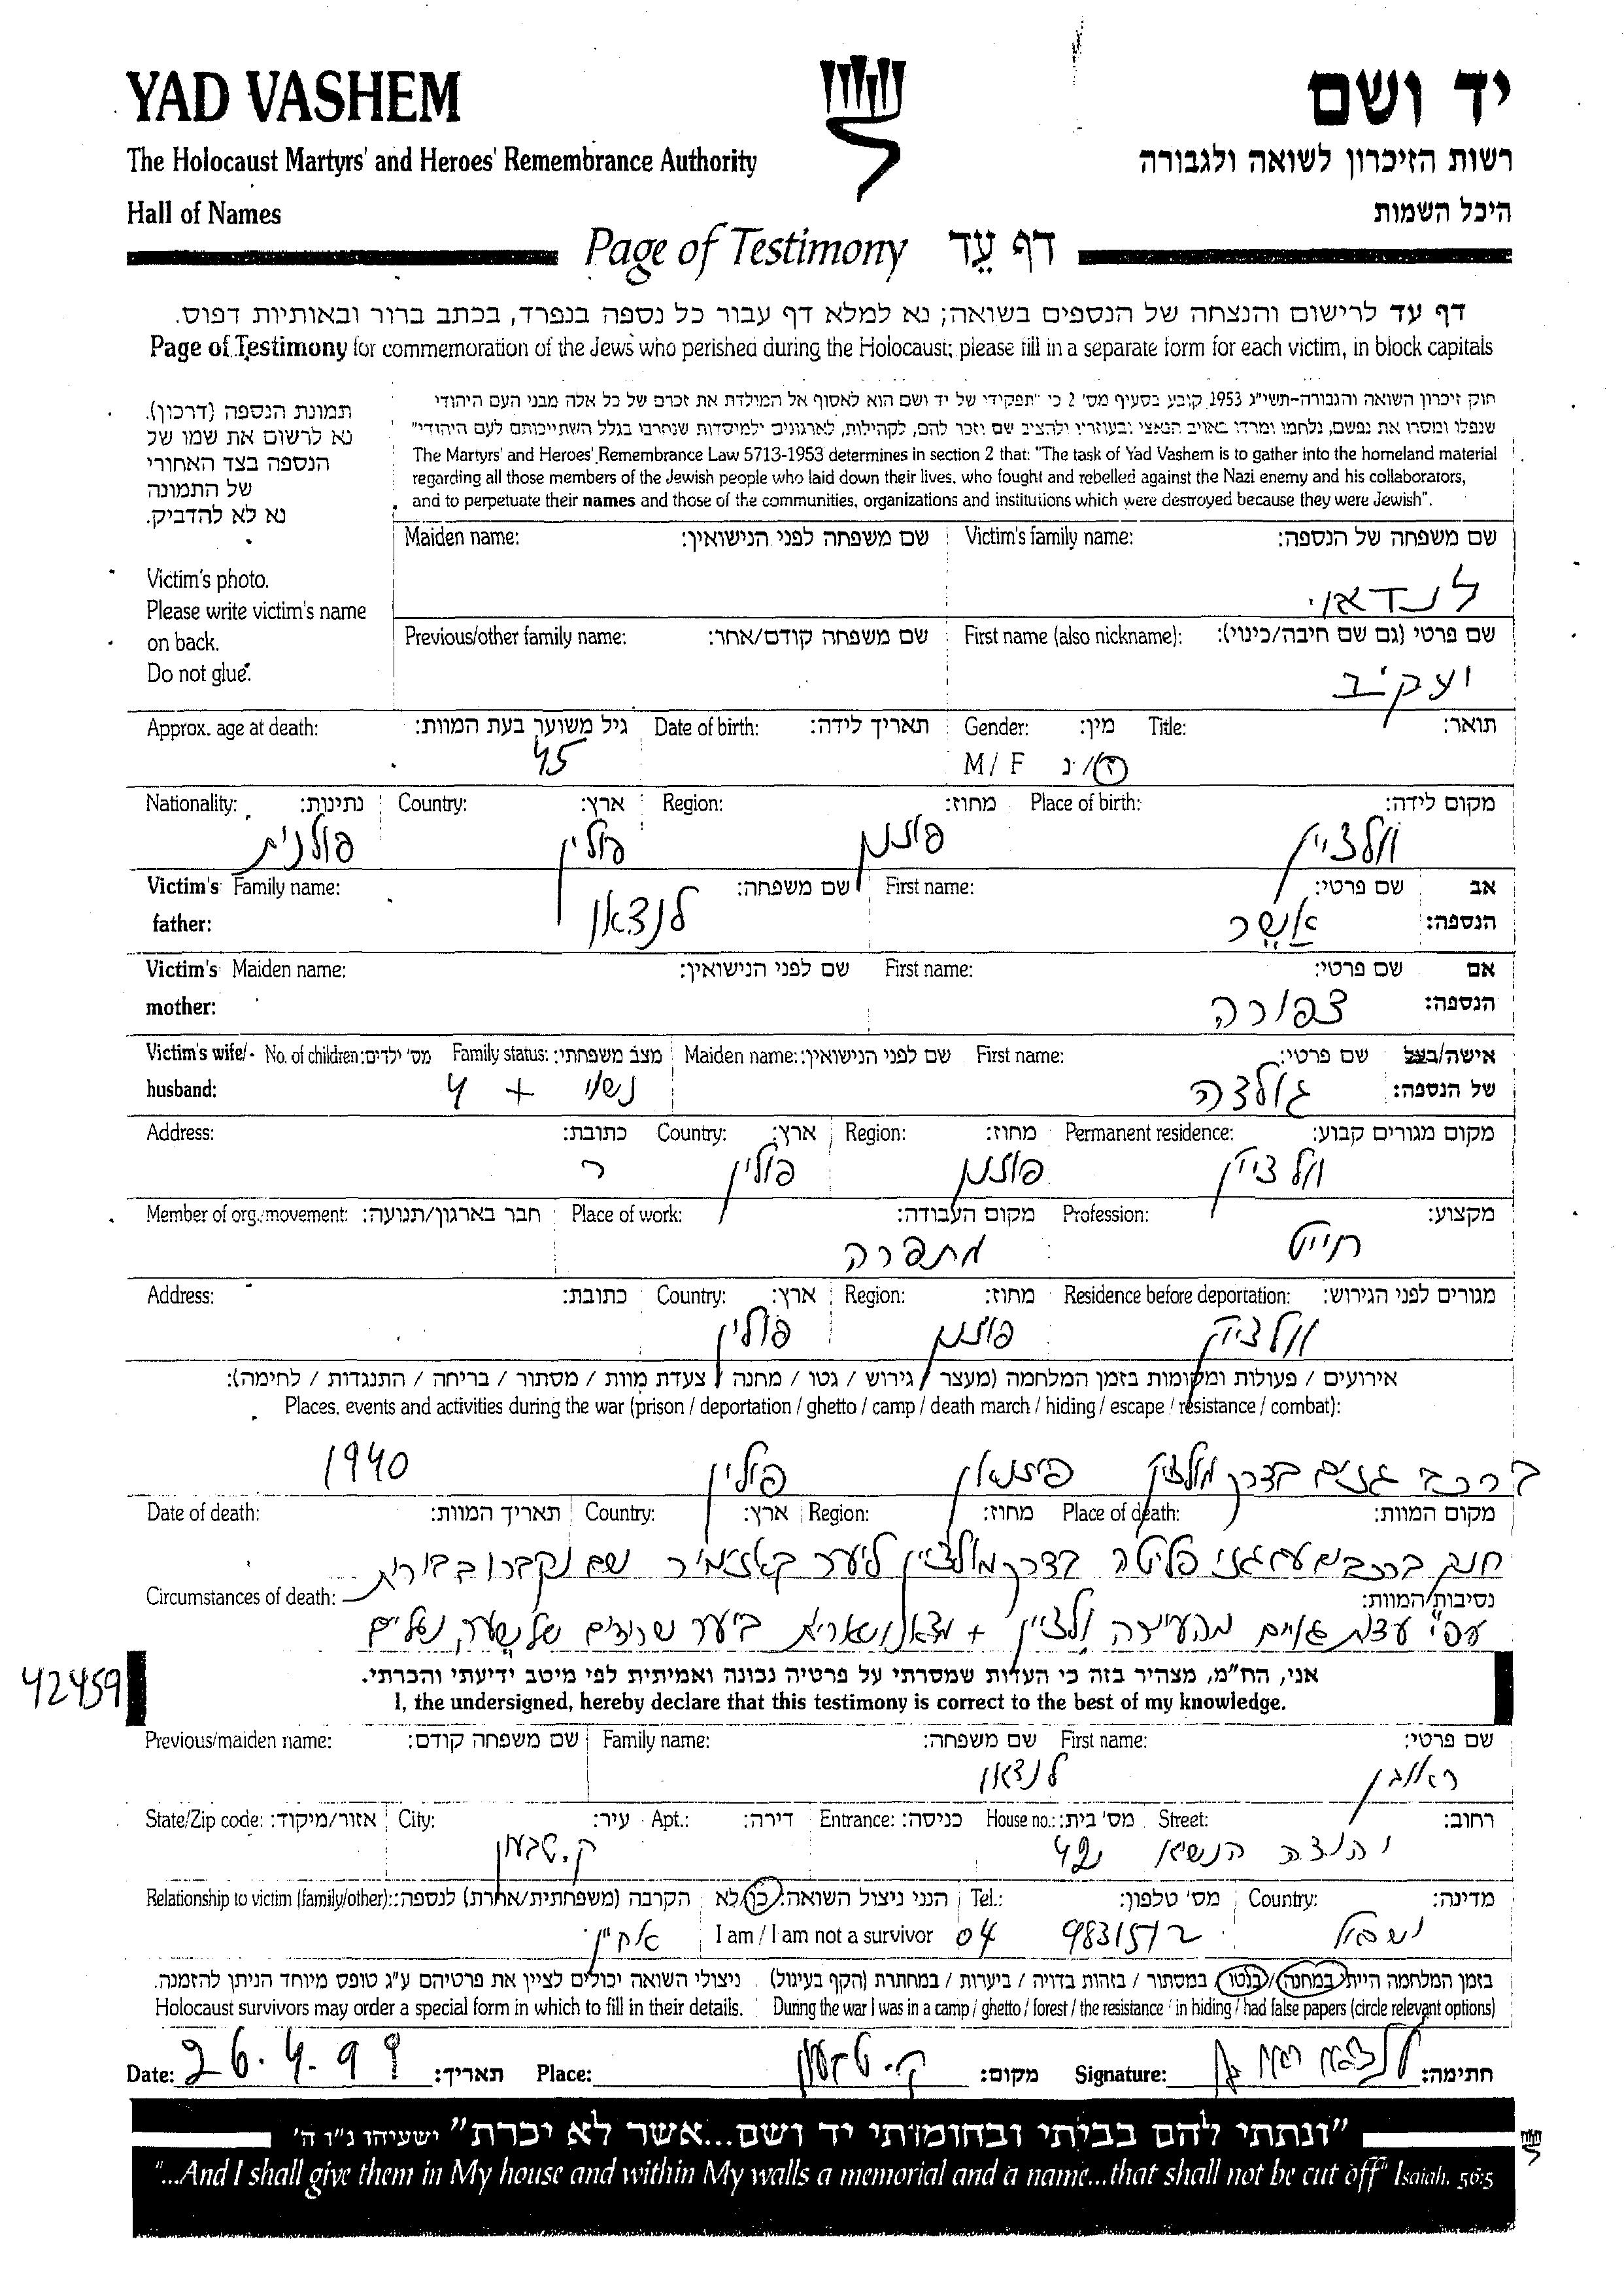 YAD VASHEM
יד ושם
The Holocaust Martyrs' and Heroes' Remembrance Authority
רשות הזיכרון לשואה ולגבורה
Hall of Names
היכל השמות
Page of Testimony דף עֵד
דף עד לרישום והנצחה של הנספים בשואה; נא למלא דף עבור כל נספה בנפרד, בכתב ברור ובאותיות דפוס.
Page of Testimony for commemoration of the Jews who perished during the Holocaust; please fill in a separate form for each victim, in block capitals
תמונת הנספה (דרכון).
נא לרשום את שמו של
הנספה בצד האחורי
של התמונה
נא לא להדביק.
Victim's photo.
Please write victim's name
on back.
Do not glue.
חוק זיכרון השואה והגבורה-תשי"ג 1953 קובע בסעיף מס' 2 כי "תפקידי של יד ושם הוא לאסוף אל המולדת את זכרם של כל אלה מבני העם היהודי
שנפלו ומסרו את נפשם, נלחמו ומרדו באויב הנאצי ובעוזריו ולהציב שם וזכר להם, לקהילות, לארגונים ולמוסדות שנחרבו בגלל השתייכותם לעם היהודי"
The Martyrs' and Heroes' Remembrance Law 5713-1953 determines in section 2 that: "The task of Yad Vashem is to gather into the homeland material
regarding all those members of the Jewish people who laid down their lives, who fought and rebelled against the Nazi enemy and his collaborators,
and to perpetuate their names and those of the communities, organizations and institutions which were destroyed because they were Jewish".
שם משפחה של הנספה: Victim's family name: שם משפחה לפני הנישואין: Maiden name:
לנדאו
שם פרטי (גם שם חיבה/כינוי): First name (also nickname): שם משפחה קודם/אחר: Previous/other family name:
יעקב
תואר: Title: מין: Gender: תאריך לידה: Date of birth: גיל משוער בעת המוות: Approx. age at death:
ז/נ M/ F 45
מקום לידה: Place of birth: מחוז: Region: ארץ: Country: נתינות: Nationality:
וולצין פוזנן פולין פולנית
אב שם פרטי: First name: שם משפחה: Family name: Victim's
הנספה: אַנְשֶׁר לנדאו father:
אם שם פרטי: First name: שם לפני הנישואין: Maiden name: Victim's
הנספה: צפורה mother:
אישה/בעל שם פרטי: First name: שם לפני הנישואין: Maiden name: מצב משפחתי: Family status: מס' ילדים: No. of children: Victim's wife/
של הנספה: גולדה נשוי + 4 husband:
מקום מגורים קבוע: Permanent residence: מחוז: Region: ארץ: Country: כתובת: Address:
וולצין פוזנן פולין
מקצוע: Profession: מקום העבודה: Place of work: חבר בארגון/תנועה: Member of org./movement:
חייט מתפרה
מגורים לפני הגירוש: Residence before deportation: מחוז: Region: ארץ: Country: כתובת: Address:
וולצין פוזנן פולין
אירועים / פעולות ומקומות בזמן המלחמה (מעצר / גירוש / גטו / מחנה / צעדת מוות / מסתור / בריחה / התנגדות / לחימה):
Places, events and activities during the war (prison / deportation / ghetto / camp / death march / hiding / escape / resistance / combat):
ברכב גזים בדרך מולצין פוזנאן פולין 1940
מקום המוות: Place of death: מחוז: Region: ארץ: Country: תאריך המוות: Date of death:
חנק ברכבים עם גזי פליטה בדרך מולצין ליער קאזימיר שם נקברו בבורות
נסיבות המוות: Circumstances of death:
עפ"י עדות גויים מהעיירה ולצין + ביער שרידים של שער, נעלים
42459
אני, הח"מ, מצהיר בזה כי העדות שמסרתי על פרטיה נכונה ואמיתית לפי מיטב ידיעתי והכרתי.
I, the undersigned, hereby declare that this testimony is correct to the best of my knowledge.
שם פרטי: First name: שם משפחה: Family name: שם משפחה קודם: Previous/maiden name:
ראובן לנדאו
רחוב: Street: מס' בית: House no.: כניסה: Entrance: דירה: Apt.: עיר: City: אזור/מיקוד: State/Zip code:
יהודה הנשיא 42 ק. טבעון
מדינה: Country: מס' טלפון: Tel.: הנני ניצול השואה: כן/לא הקרבה (משפחתית/אחרת) לנספה: Relationship to victim (family/other):
ישראל 9831512 04 I am / I am not a survivor אחיין
בזמן המלחמה הייתי במחנה/בגטו/ במסתור / בזהות בדויה / ביערות / במחתרת (הקף בעיגול) ניצולי השואה יכולים לציין את פרטיהם ע"ג טופס מיוחד הניתן להזמנה.
Holocaust survivors may order a special form in which to fill in their details. During the war I was in a camp / ghetto / forest / the resistance / in hiding / had false papers (circle relevant options)
Date: 26.4.99 תאריך: Place: ק. טבעון מקום: Signature: לנדאו ראובן חתימה:
"ונתתי להם בביתי ובחומותי יד ושם...אשר לא יכרת" ישעיהו נ"ו ה'
"...And I shall give them in My house and within My walls a memorial and a name...that shall not be cut off" Isaiah, 56:5